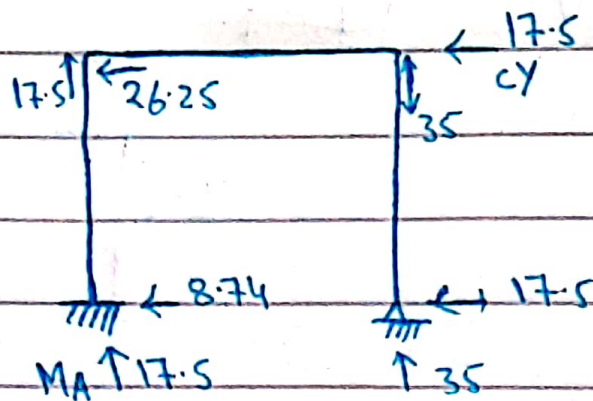 17.5
17.5
26.25
CY
35
8.74
17.5
MA
17.5
35